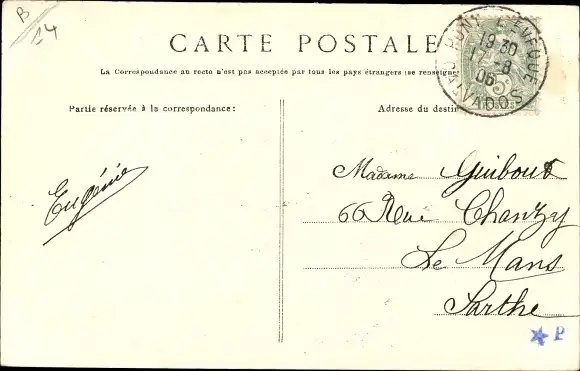 B
14
CARTE POSTALE
La Correspondance au recto n'est pas acceptée par tous les pays étrangers (se renseigne
Partie réservée à la correspondance:
Adresse du destin
PONT L'EVEQUE
19 30
-8
06
CALVADOS
5
Eugénie
Madame Guibout
66 Rue Chanzy
Le Mans
Sarthe
P